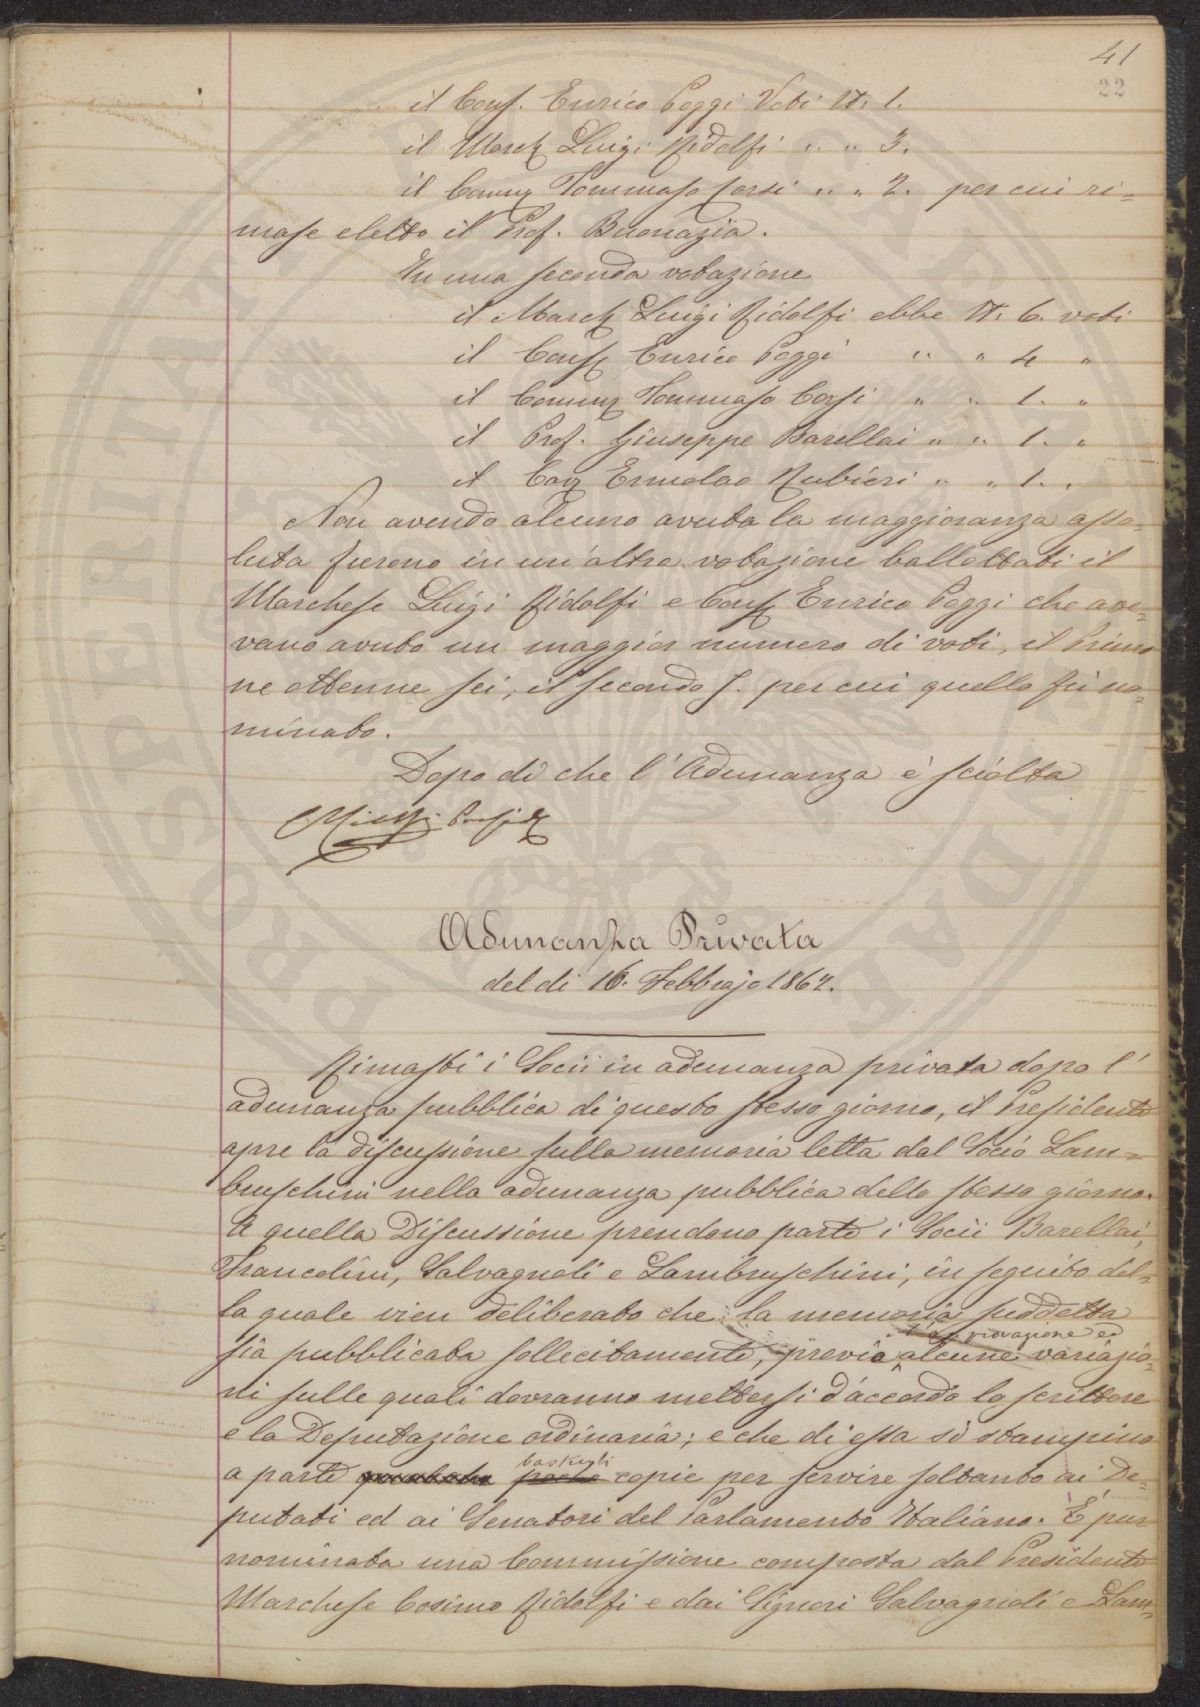 41
22
il Cons. Enrico Poggi Voti N. 1.
il March Luigi Ridolfi " " 3.
il Comm Tommaso Corsi " " 2. per cui ri=
mase eletto il Prof. Buonazia.
In una seconda votazione
il March Luigi Ridolfi ebbe N. 6. voti
il Cons Enrico Poggi " " 4 "
il Comm Tommaso Corsi " " 1. "
il Prof. Giuseppe Barellai " " 1. "
il Cav Ermolao Rubieri " " 1. "
Non avendo alcuno avuta la maggioranza asso=
luta furono in un'altra votazione ballottati il
Marchese Luigi Ridolfi e Cons Enrico Poggi che ave=
vano avuto un maggior numero di voti, il Primo
ne ottenne sei, il secondo 5. per cui quello fu no=
minato.
Dopo di che l'Adunanza è sciolta
CRidolfi Presid
Adunanza Privata
del di 16. Febbrajo 1862.
Rimasti i Socii in adunanza privata dopo l'
adunanza pubblica di questo stesso giorno, il Presidente
apre la discussione sulla memoria letta dal Socio Lam=
bruschini nella adunanza pubblica dello stesso giorno.
A quella Discussione prendono parte i Socii Barellai,
Francolini, Salvagnoli e Lambruschini, in seguito del=
la quale vien deliberato che la memoria suddetta
l'approvazione ed
sia pubblicata sollecitamente, previe alcune variazio=
ni sulle quali dovranno mettersi d'accordo lo scrittore
e la Deputazione ordinaria; e che di essa si stampino
bastanti
a parte poche copie per servire soltanto ai De=
putati ed ai Senatori del Parlamento Italiano. È pur
nominata una Commissione composta dal Presidente
Marchese Cosimo Ridolfi e dai Signori Salvagnoli e Lam=